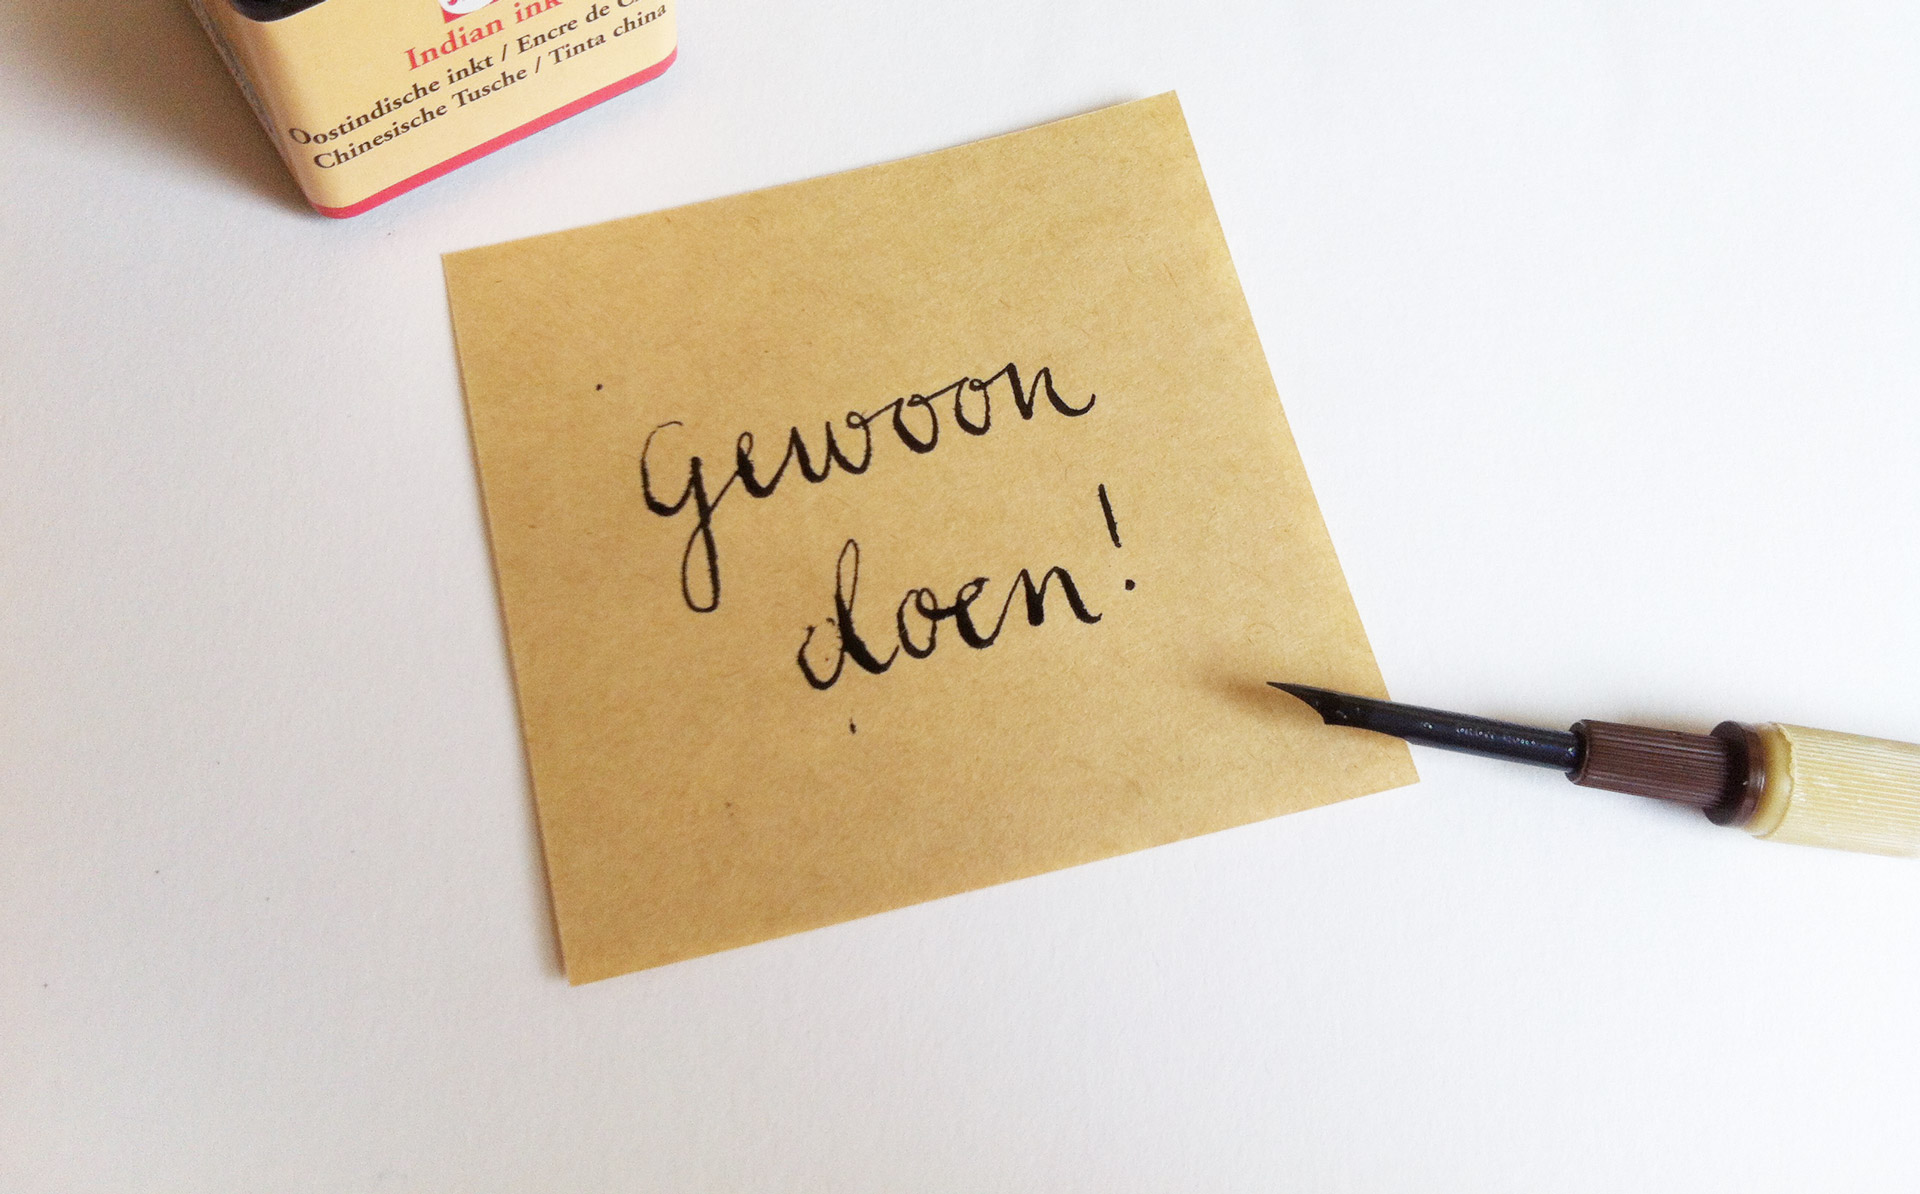 Indian ink
Oostindische inkt / Encre de
Chinesische Tusche / Tinta china
Gewoon
doen!